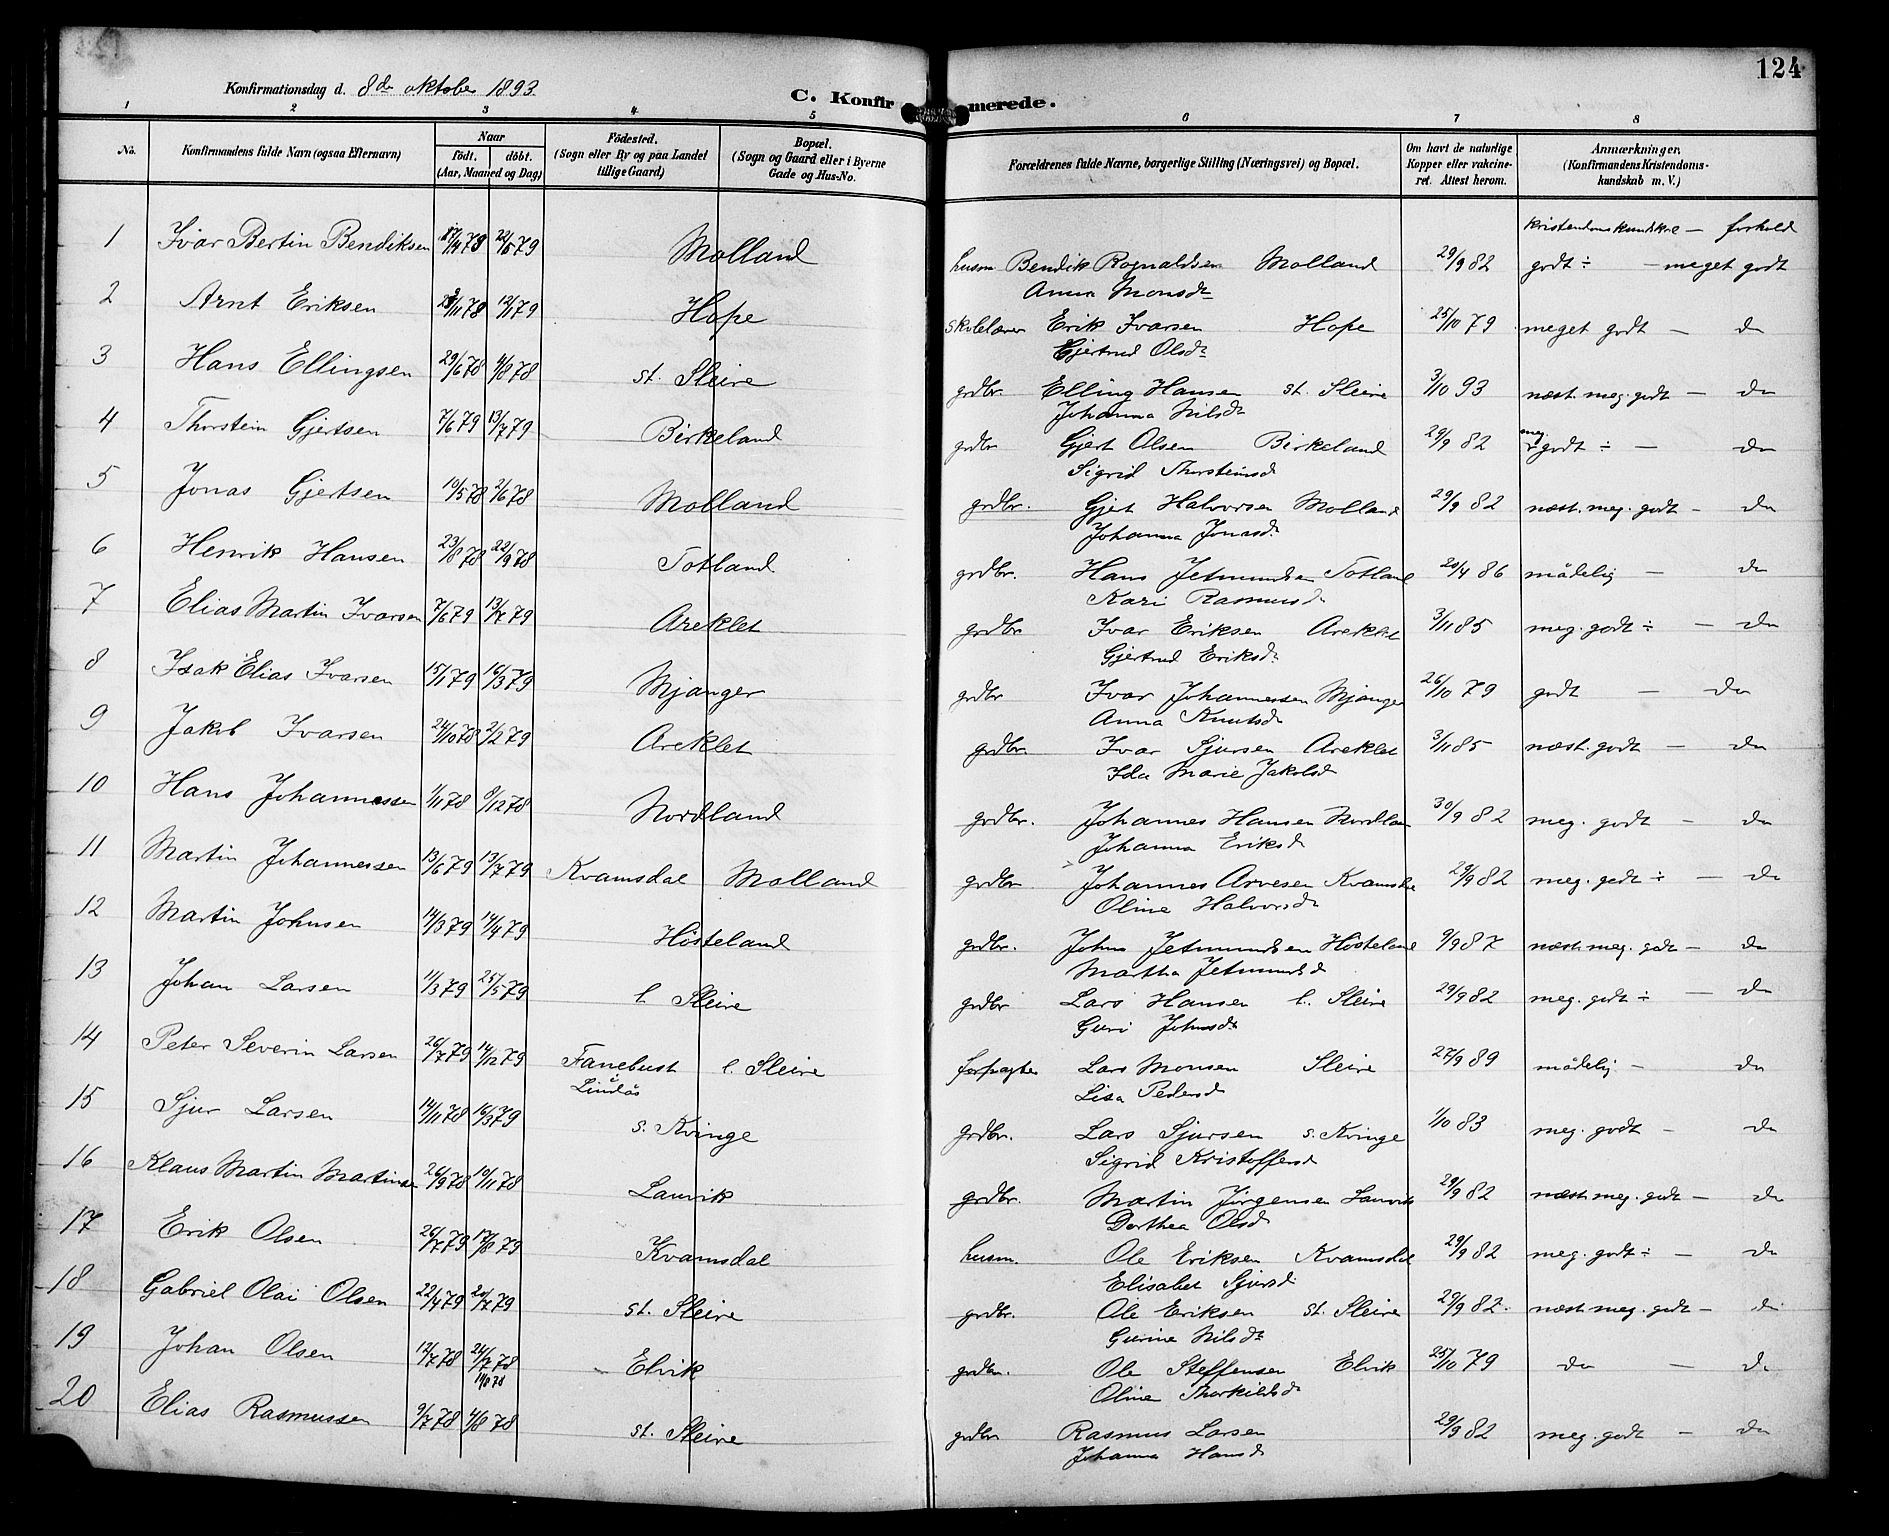 124
Konfirmationsdag d. 8de oktober 1893.
C. Konfirmerede.
1 2 3 4 5 6 7 8
No. Konfirmandens fulde Navn (ogsaa Efternavn) Naar födt. döbt. (Aar, Maaned og Dag) Födested. (Sogn eller By og paa Landet tillige Gaard) Bopæl. (Sogn og Gaard eller i Byerne Gade og Hus-No. Forældrenes fulde Navne, borgerlige Stilling (Næringsvei) og Bopæl. Om havt de naturlige Kopper eller vakcineret. Attest herom. Anmærkninger. (Konfirmandens Kristendomskundskab m. V.)
kristendomskundskab — forhold
1 Ivar Bertin Bendiksen 22/5 79 Molland husm Bendik Rognaldsen Molland 29/9 82 godt ÷ — meget godt
Anna Monsdr
2 Arnt Eriksen 12/1 79 Hope skolelærer Erik Ivarsen Hope 25/10 79 meget godt — do
Gjertrud Olsdr
3 Hans Ellingsen 29/6 78 4/8 78 st. Sleire grdbr. Elling Hansen st. Sleire 3/10 93 næst. meg. godt — do
Johanna Nilsdr
4 Thorstein Gjertsen 7/6 79 13/7 79 Birkeland grdbr Gjert Olsen Birkeland 29/9 82 meg. godt ÷ — do
Sigrid Thorsteinsd
5 Jonas Gjertsen 10/5 78 2/6 78 Molland grdbr. Gjert Halvorsen Molland 29/9 82 næst. meg. godt — do
Johanna Jonasd.
6 Henrik Hansen 23/8 78 22/9 78 Totland grdbr. Hans Jetmundsen Totland 20/4 86 mådelig — do
Kari Rasmusd
7 Elias Martin Ivarsen 7/6 79 13/7 79 Areklet grdbr Ivar Eriksen Areklet 3/11 85 meg. godt ÷ — do
Gjertrud Eriksdr
8 Isak Elias Ivarsen 15/1 79 16/3 79 Mjanger grdbr Ivar Johannessen Mjanger 26/10 79 godt — do
Anna Knutsd
9 Jakob Ivarsen 24/10 78 2/2 79 Areklet grdbr. Ivar Sjursen Areklet 3/11 85 næst. godt — do
Ida Marie Jakobsd
10 Hans Johannessen 1/11 78 8/12 78 Nordland grdbr. Johannes Hansen Nordlan 30/9 82 meg. godt — do
Johanna Eriksd
11 Martin Johannessen 13/6 79 13/7 79 Kvamsdal Molland grdbr Johannes Arvesen Kvamsdal 29/9 82 meg. godt ÷ — do
Oline Halvorsd
12 Martin Johnsen 14/3 79 14/4 79 Hösteland grdbr. John Jetmundsen Hösteland 9/9 87 næst. meg. godt — do
Martha Jetmundsd
13 Johan Larsen 11/3 79 25/5 79 l. Sleire grdbr Lars Hansen l. Sleire 29/9 82 meg. godt ÷ — do
Guri Johnsdr
14 Peter Severin Larsen 26/7 79 14/12 79 Fanebust i Lindås l. Sleire forpagter Lars Monsen Sleire 27/9 89 mådelig — do
Lisa Pedersd
15 Sjur Larsen 14/11 78 16/3 79 s. Kvinge grdbr. Lars Sjursen s. Kvinge 1/10 83 meg. godt — do
Sigrid Kristoffersd
16 Klaus Martin Martinsen 26/9 78 10/11 78 Lauvik grdbr. Martin Jörgensen Lauvik 29/9 82 næst. meg. godt — do
Dorthea Olsd
17 Erik Olsen 26/7 79 17/8 79 Kvamsdal husm. Ole Eriksen Kvamsdal 29/9 82 meg. godt ÷ — do
Elisabet Sjursd.
18 Gabriel Olai Olsen 22/4 79 20/7 79 st. Sleire grdbr. Ole Eriksen st. Sleire 29/9 82. næst meg. godt — do
Gurine Nilsdr
19 Johan Olsen 12/7 78 21/7 78 Elvik grdbr. Ole Steffensen Elvik 25/10 79 do — do
Oline Thorkildsd
20 Elias Rasmussen 9/7 78 4/8 78 st. Sleire grdbr Rasmus Larsen 29/9 82 meg. godt — do
Johanna Hansd